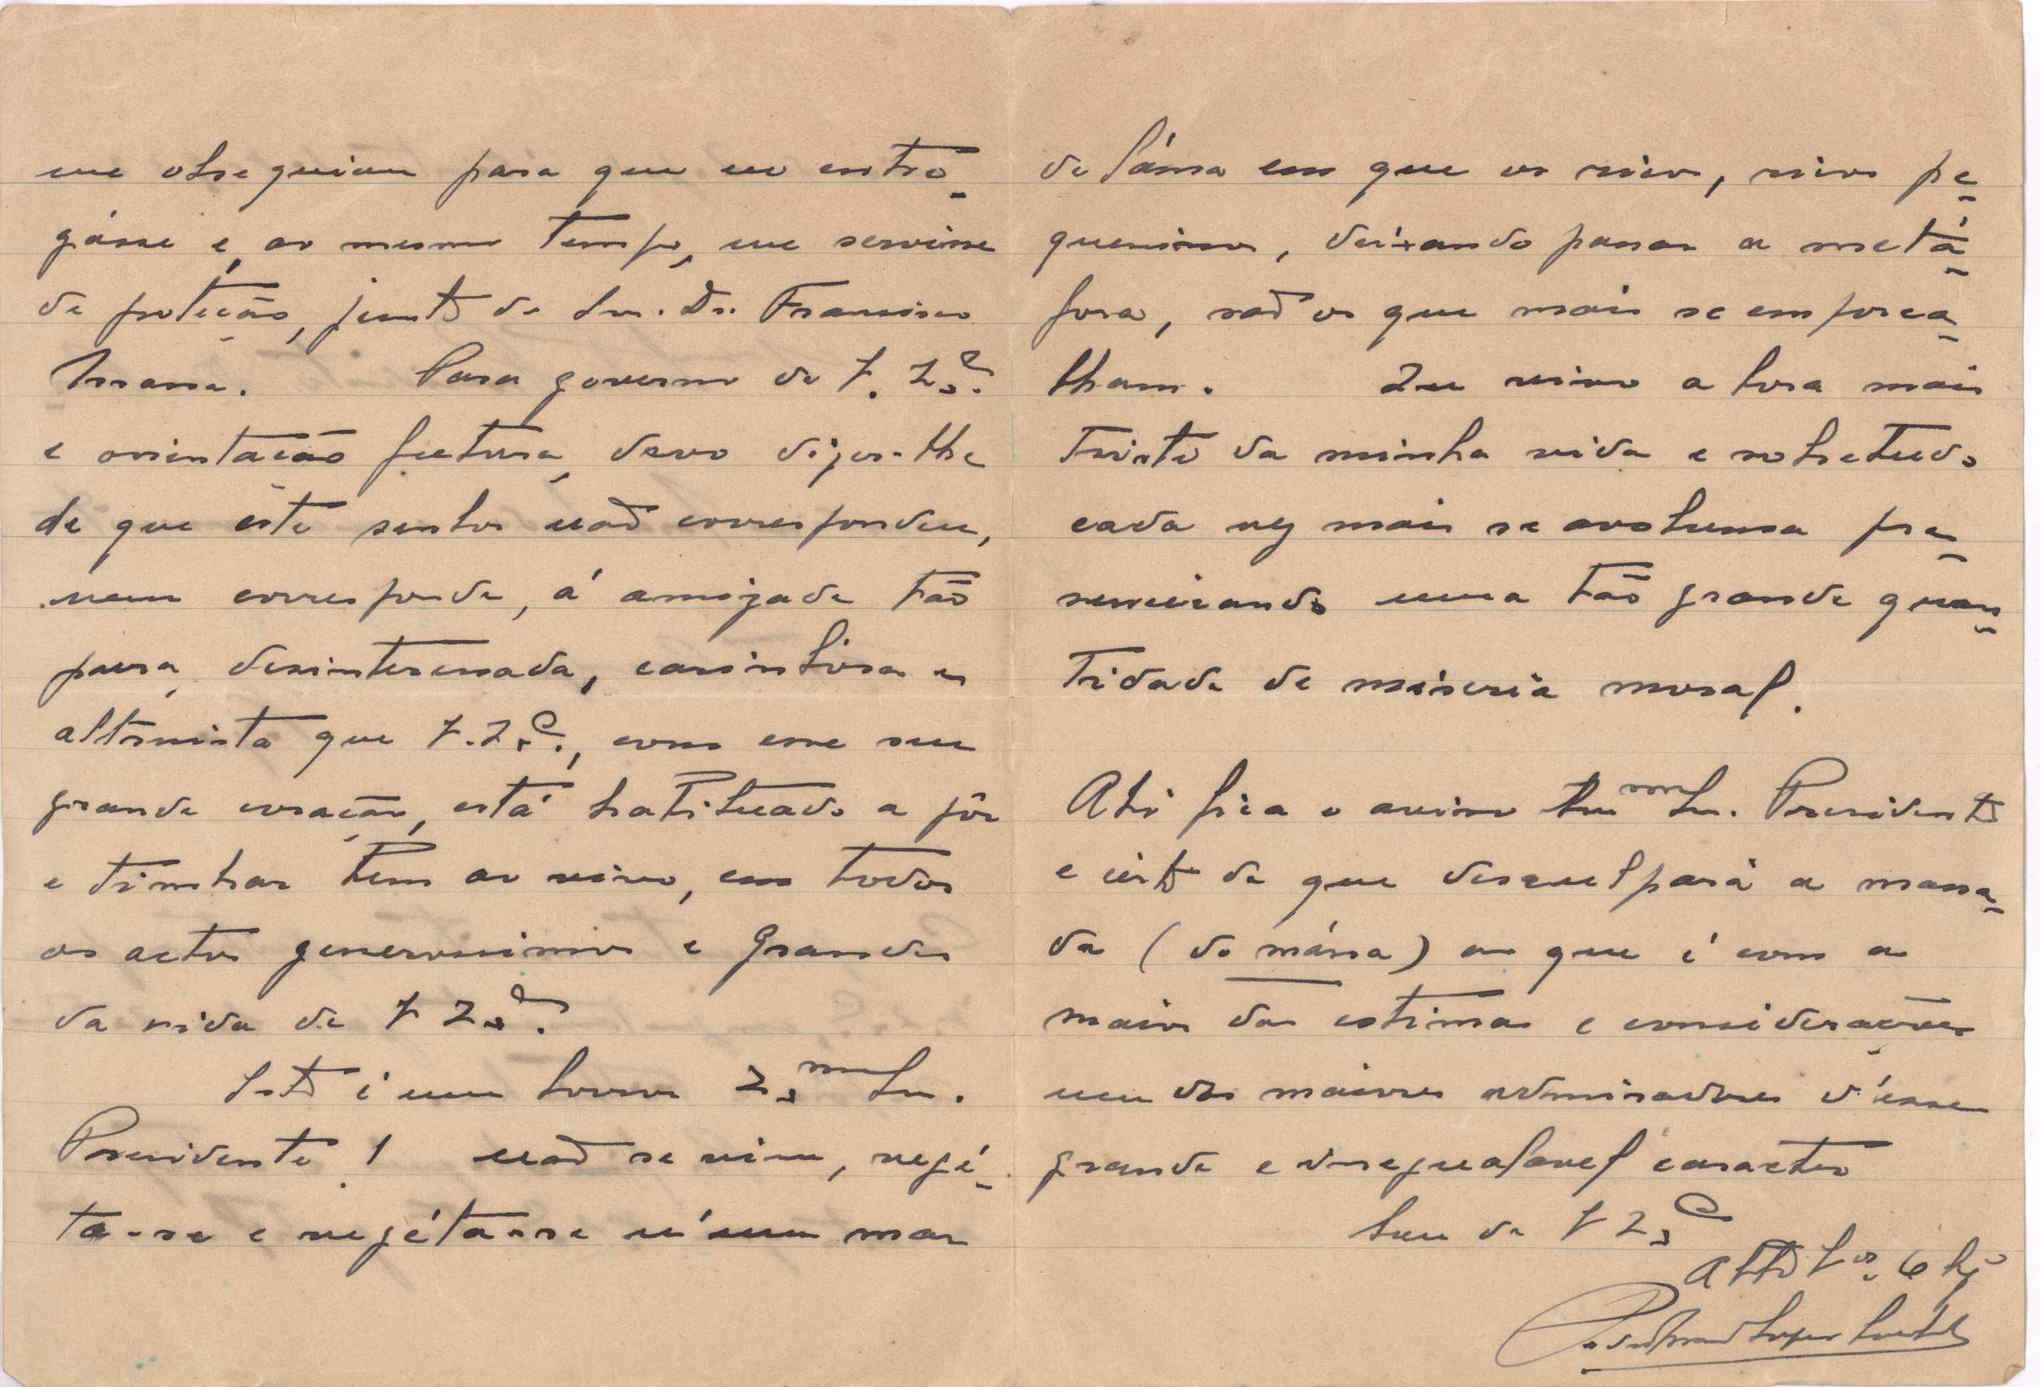 me obsequiou para que eu entre-
gásse e, ao mesmo tempo, me servisse
de proteção, junto do Snr. Dr. Francisco
Para governo de V. Ex.ª
e orientação futura, devo dizer-lhe
de que êste senhor naõ correspondeu,
nem corresponde, á amizade tão
pura, desinteressada, carinhosa e
altruista que V. Ex.ª, com esse seu
grande coração, está habituado a pôr
e timbrar bem ao vivo, em todos
os actos generosissimos e grandes
da vida de V Ex.ª.
Isto é um horror Ex.mo Snr.
Presidente! Naõ se vive, vegé-
ta-se e vegéta-se n'um mar
de láma em que os vivos, vivos pe-
quenissimos, deixando passar a metá-
fora, saõ os que mais se emporca-
lham. Eu vivo a hora mais
triste da minha vida e sobretudo
cada vez mais se avoluma pre-
senciando uma tão grande quan-
tidade de miseria moral.
Ahi fica o aviso Exmo Snr. Presidente
e certo de que desculpará a massa-
da (de mássa) sou que é com a
maior das estimas e considerações
um dos maiores admiradores d'esse
grande e inegualavel caracter
Sou de V Ex.ª
Att.º V.or e Obg.º